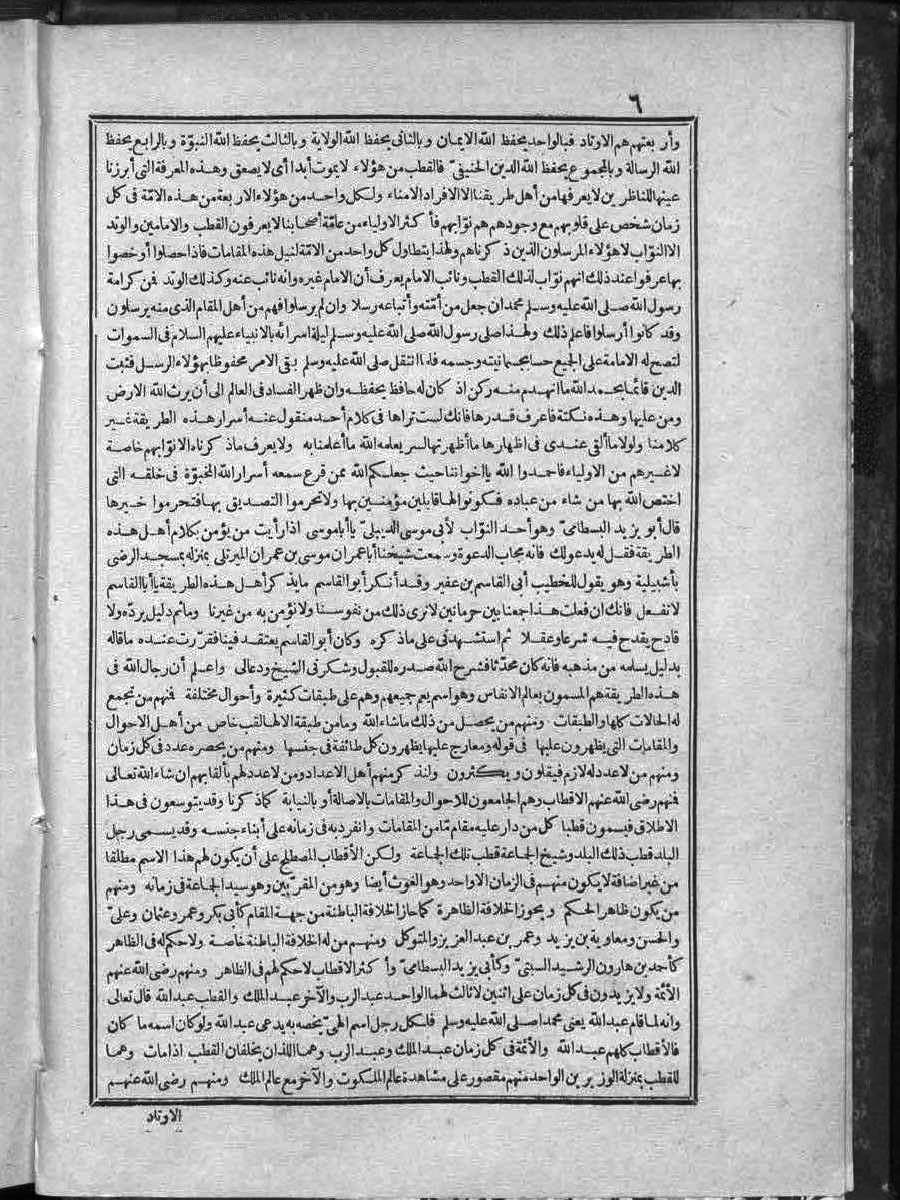 ٦
وأربعتهم هم الاوتاد فبالواحد يحفظ الله الايمان وبالثانى يحفظ الله الولاية وبالثالث يحفظ الله النبوّة وبالرابع يحفظ
الله الرسالة وبالمجموع يحفظ الله الدين الحنيفىّ فالقطب من هؤلاء لا يموت أبدا أى لا يصعق وهذه المعرفة التى أبرزنا
عينها للناظرين لا يعرفها من أهل طريقنا الا الافراد الامناء ولكل واحد من هؤلاء الاربعة من هذه الامّة فى كل
زمان شخص على قلوبهم مع وجودهم هم نوّابهم فأكثر الاولياء من عامّة أصحابنا لا يعرفون القطب والامامين والوتد
الا النوّاب لا هؤلاء المرسلون الذين ذكرناهم ولهذا يتطاول كل واحد من الامّة لنيل هذه المقامات فاذا حصلوا أو خصوا
بها عرفوا عند ذلك انهم نوّاب لذلك القطب ونائب الامام يعرف أن الامام غيره وانه نائب عنه وكذلك الوتد فمن كرامة
رسول الله صلى الله عليه وسلم محمد ان جعل من أمّته وأتباعه رسلا وان لم يرسلوا فهم من أهل المقام الذى منه يرسلون
وقد كانوا أرسلوا فاعلم ذلك ولهذا صلى رسول الله صلى الله عليه وسلم ليلة اسرائه بالانبياء عليهم السلام فى السموات
لتصح له الامامة على الجميع حسا بجسمانيته وجسمه فلما انتقل صلى الله عليه وسلم بقى الامر محفوظا بهؤلاء الرسل فثبت
الدين قائما بحمد الله ما انهدم منه ركن اذ كان له حافظ يحفظه وان ظهر الفساد فى العالم الى أن يرث الله الارض
ومن عليها وهذه نكتة فاعرف قدرها فانك لست تراها فى كلام أحد منقول عنه أسرار هذه الطريقة غير
كلامنا ولولا ما ألقى عندى فى اظهارها ما أظهرتها لسر يعلمه الله ما أعلمنا به ولا يعرف ما ذكرناه الا نوّابهم خاصة
لا غيرهم من الاولياء فاحمدوا الله يا اخواننا حيث جعلكم الله ممن قرع سمعه أسرار الله المخبوّة فى خلقه التى
اختص الله بها من شاء من عباده فكونوا لها قابلين مؤمنين بها ولا تحرموا التصديق بها فتحرموا خيرها
قال أبو يزيد البسطامىّ وهو أحد النوّاب لأبى موسى الدبيلىّ يا أبا موسى اذا رأيت من يؤمن بكلام أهل هذه
الطريقة فقل له يدعو لك فانه مجاب الدعوة وسمعت شيخنا أبا عمران موسى بن عمران الميرتلى بمنزله بمسجد الرضى
بأشبيلية وهو يقول للخطيب أبى القاسم بن عفير وقد أنكر أبو القاسم ما يذكر أهل هذه الطريقة يا أبا القاسم
لا تفعل فانك ان فعلت هذا جمعنا بين حرمانين لا نرى ذلك من نفوسنا ولا نؤمن به من غيرنا وما ثم دليل يردّه ولا
قادح يقدح فيه شرعا وعقلا ثم استشهدنى على ما ذكره وكان أبو القاسم يعتقد فينا فقرّرت عنده ما قاله
بدليل يسلمه من مذهبه فانه كان محدّثا فشرح الله صدره للقبول وشكرنى الشيخ ودعالى واعلم أن رجال الله فى
هذه الطريقة هم المسمون بعالم الانفاس وهو اسم يعم جميعهم وهم على طبقات كثيرة وأحوال مختلفة فمنهم من تجمع
له الحالات كلها والطبقات ومنهم من يحصل من ذلك ما شاء الله وما من طبقة الا لها لقب خاص من أهل الاحوال
والمقامات التى يظهرون عليها فى قوله ومعارج عليها يظهرون كل طائفة فى جنسها ومنهم من يحصره عدد فى كل زمان
ومنهم من لا عدد له لازم فيقلون ويكثرون ولنذكر منهم أهل الاعداد ومن لا عدد لهم بألقابهم ان شاء الله تعالى
فمنهم رضى الله عنهم الاقطاب وهم الجامعون للاحوال والمقامات بالاصالة أو بالنيابة كما ذكرنا وقد يتوسعون فى هذا
الاطلاق فيسمون قطبا كل من دار عليه مقام مّا من المقامات وانفرد به فى زمانه على أبناء جنسه وقد يسمى رجل
البلد قطب ذلك البلد وشيخ الجماعة قطب تلك الجماعة ولكن الأقطاب المصطلح على أن يكون لهم هذا الاسم مطلقا
من غير اضافة لا يكون منهم فى الزمان الا واحد وهو الغوث أيضا وهو من المقرّبين وهو سيد الجماعة فى زمانه ومنهم
من يكون ظاهر الحكم ويحوز الخلافة الظاهرة كما حاز الخلافة الباطنة من جهة المقام كأبى بكر وعمر وعثمان وعلىّ
والحسن ومعاوية بن يزيد وعمر بن عبد العزيز والمتوكل ومنهم من له الخلافة الباطنة خاصة ولا حكم له فى الظاهر
كأحمد بن هارون الرشيد السبتىّ وكأبى يزيد البسطامىّ وأكثر الاقطاب لا حكم لهم فى الظاهر ومنهم رضى الله عنهم
الأئمّة ولا يزيدون فى كل زمان على اثنين لا ثالث لهما الواحد عبد الرب والآخر عبد الملك والقطب عبد الله قال تعالى
وانه لما قام عبد الله يعنى محمدا صلى الله عليه وسلم فلكل رجل اسم الهىّ يخصه به يدعى عبد الله ولو كان اسمه ما كان
فالأقطاب كلهم عبد الله والأئمّة فى كل زمان عبد الملك وعبد الرب وهما اللذان يخلفان القطب اذا مات وهما
للقطب بمنزلة الوزيرين الواحد منهم مقصور على مشاهدة عالم الملكوت والآخر مع عالم الملك ومنهم رضى الله عنهم
الاوتاد